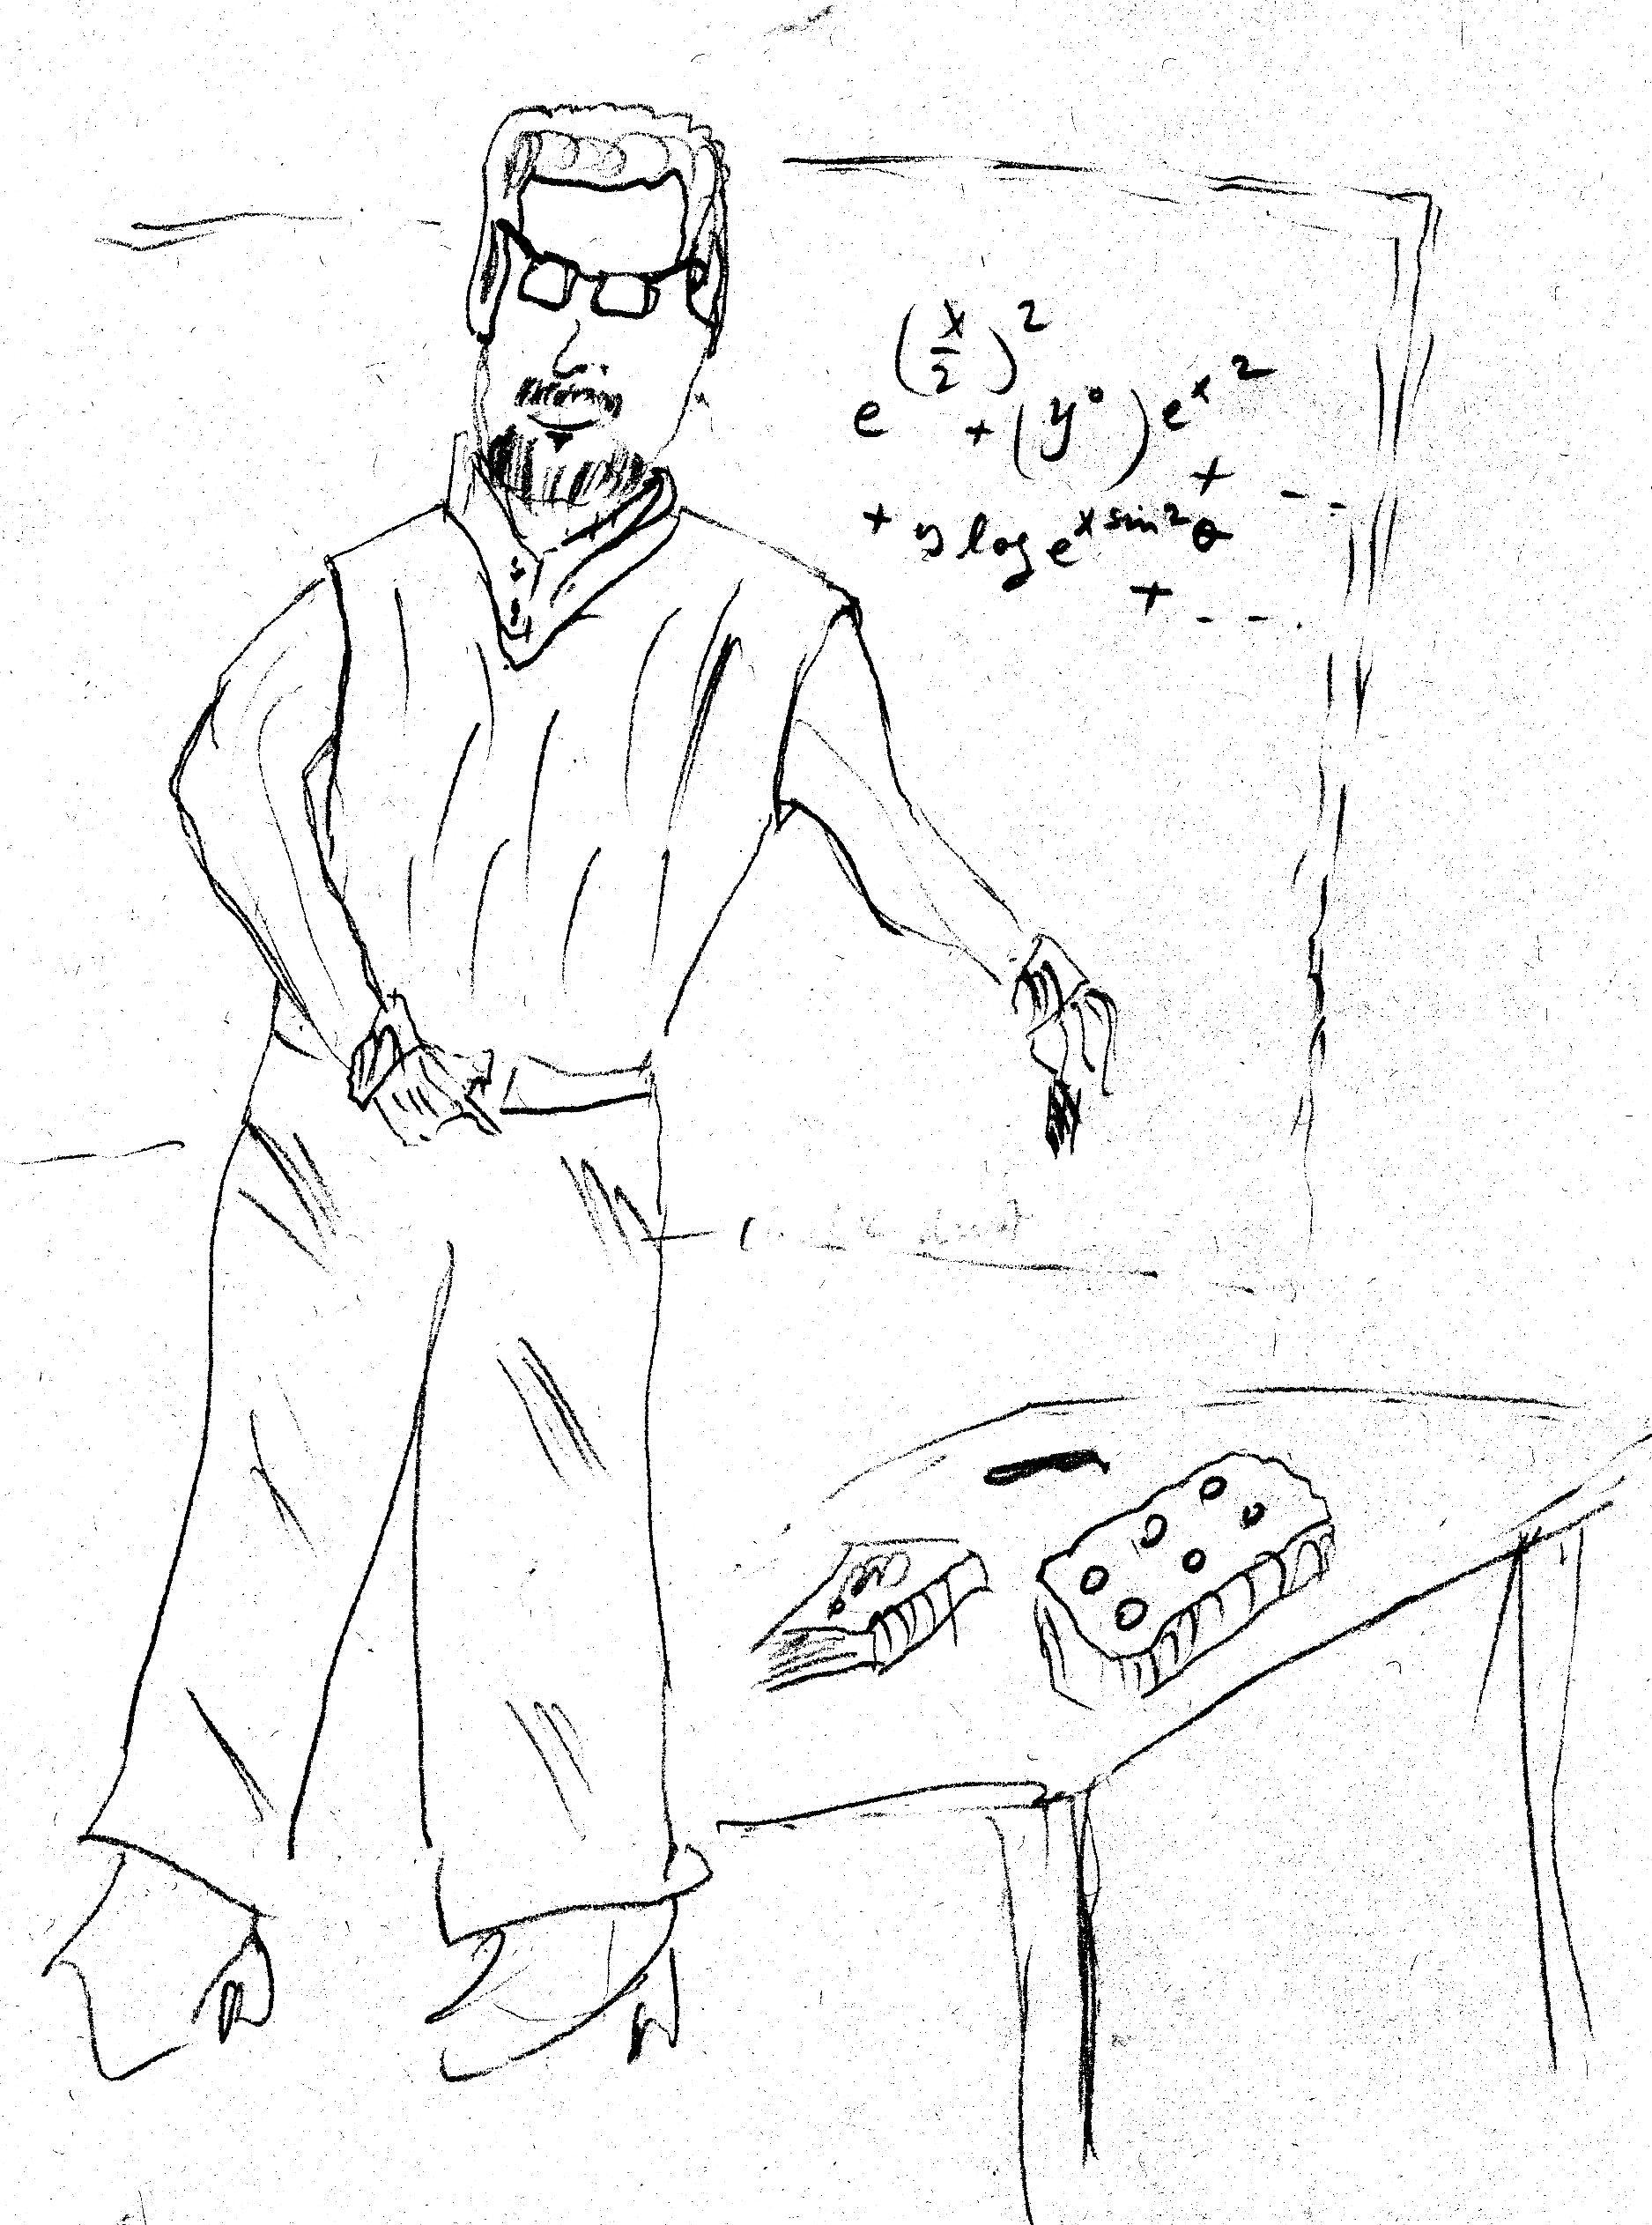 e^(x/2)^2 + (y^0) e^x^2 + - -
+ y log e^x sin^2 θ
+ - - .